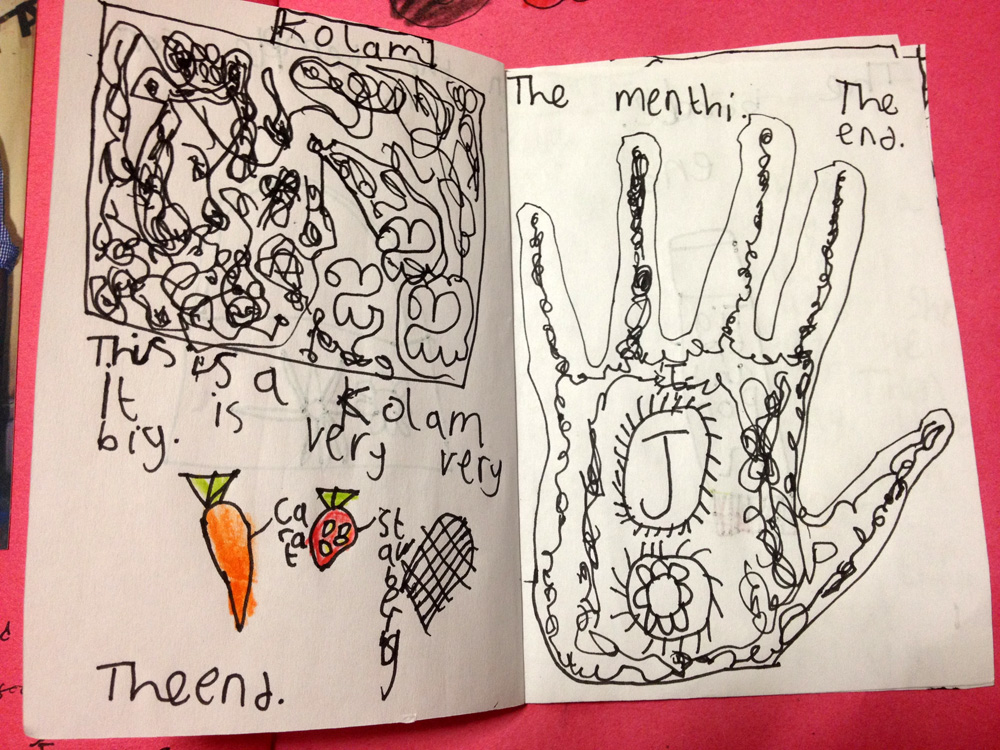 Kolam
This is a Kolam
It is very very
big.
Ca
ra
t
The end.
The menthi.
The
end.
J